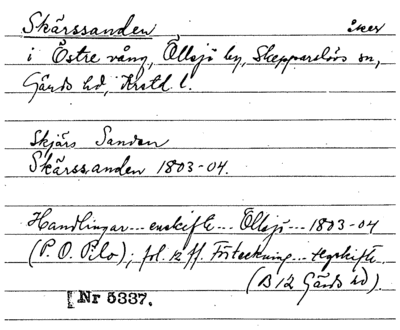 Skärssanden åker
i Östre vång, Öllsjö by, Skepparslövs sn,
Gärds hd, Krstd l.
Skjärs Sanden
Skärssanden 1803-04.
Handlingar--- enskifte--- Öllsjö--- 1803-04
(P. O. Pilo); fol. 12 ff. Förteckning--- egoskifte.
(B 12 Gärds hd).
Nr 5337.